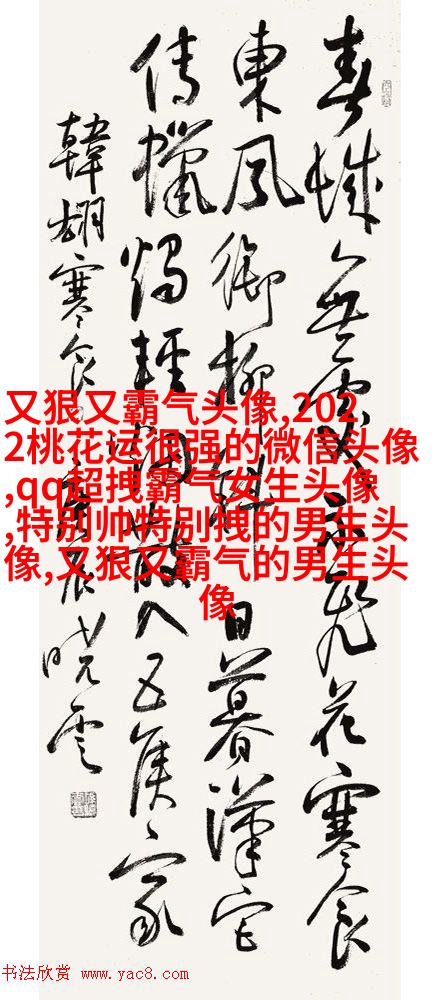 春城無處不飛花寒食
東風御柳斜日暮漢宮
傳蠟燭輕煙散入五侯家
韓翃寒食辰曉雲
又狠又霸气头像,202
2桃花运很强的微信头像
,qq超拽霸气女生头像
,特别帅特别拽的男生头
像,又狠又霸气的男生头
像
书法欣赏 www.yac8.com